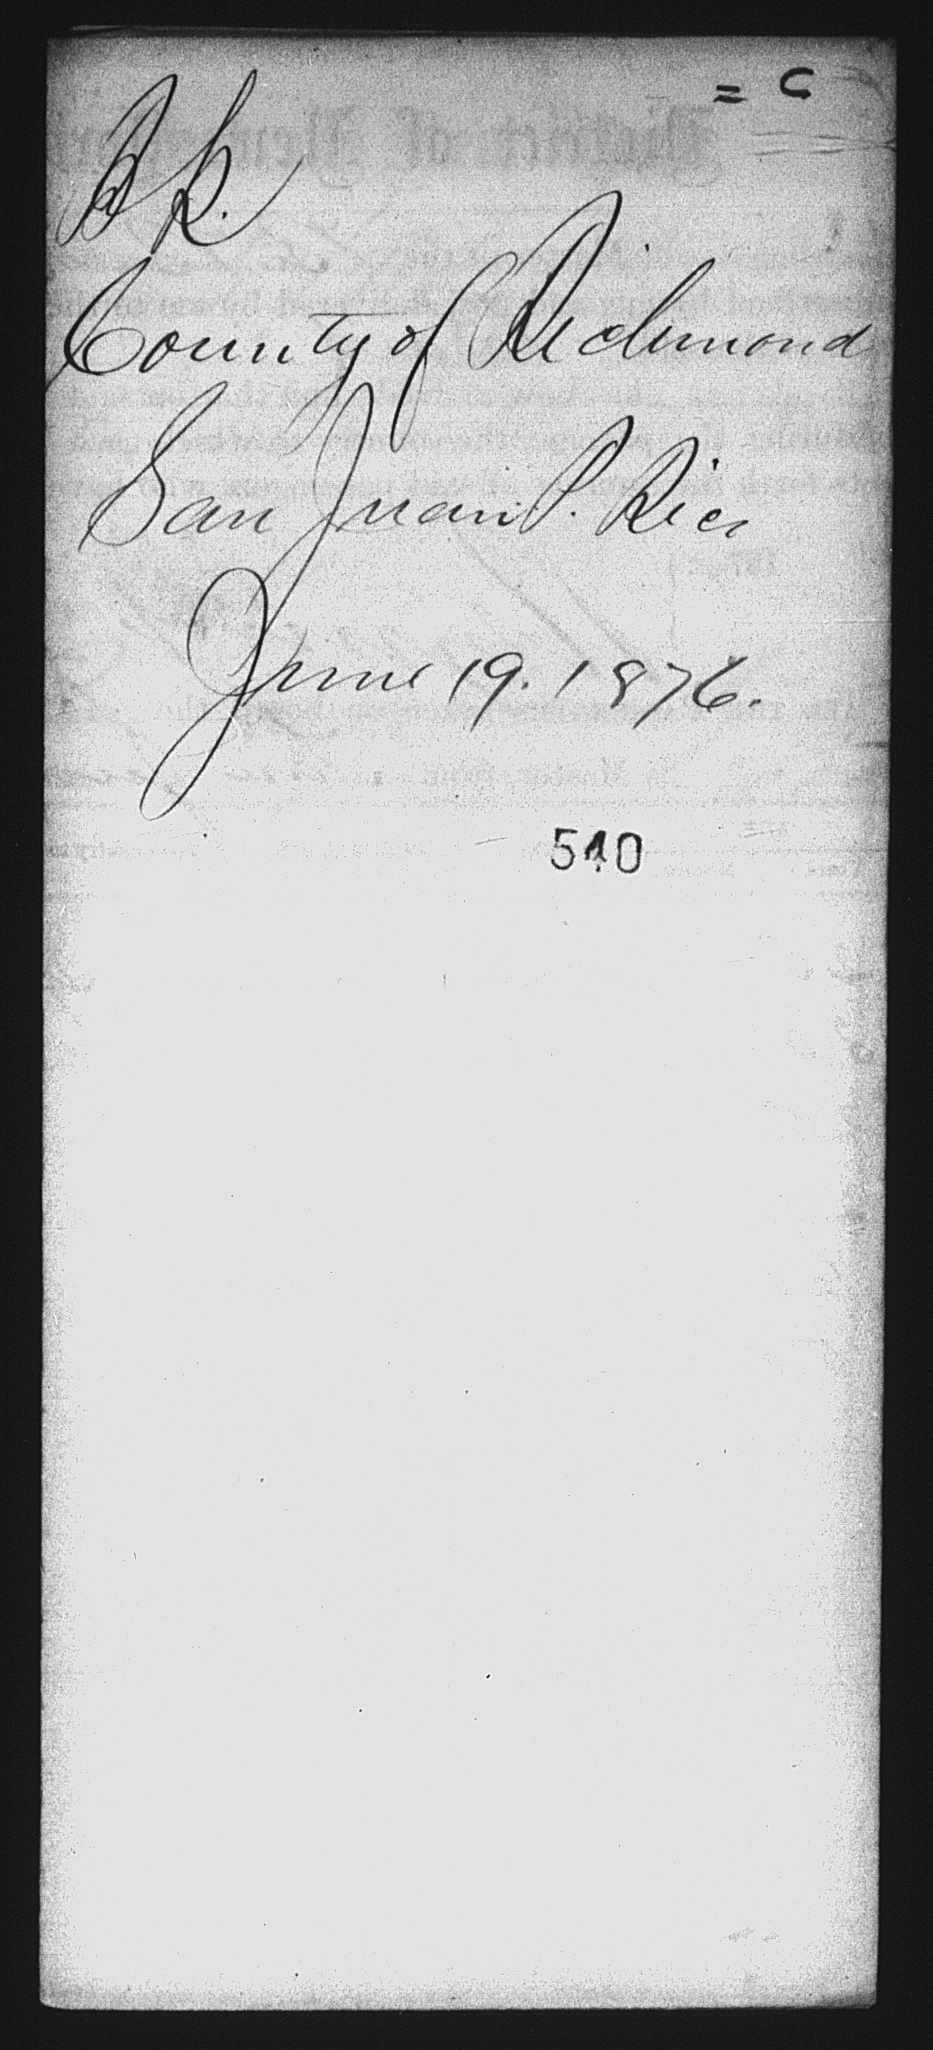 = C
Bk.
County of Richmond
San Juan P. Rico
June 19. 1876.
540